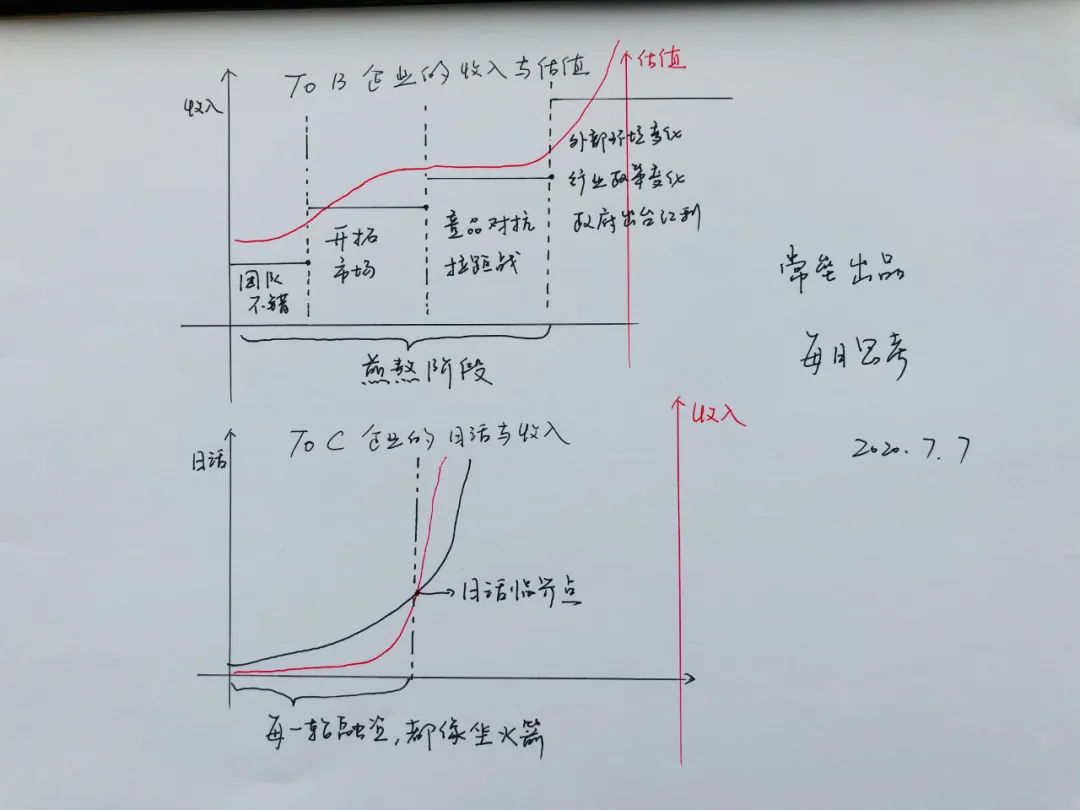 To B 企业的收入与估值
收入
估值
团队
不错
开拓
市场
竞品对抗
拉距战
外部环境变化
行业政策变化
政府出台红利
煎熬阶段
常垒出品
每日思考
2020.7.7
To C 企业的日活与收入
日活
收入
日活临界点
每一轮融资,都像坐火箭